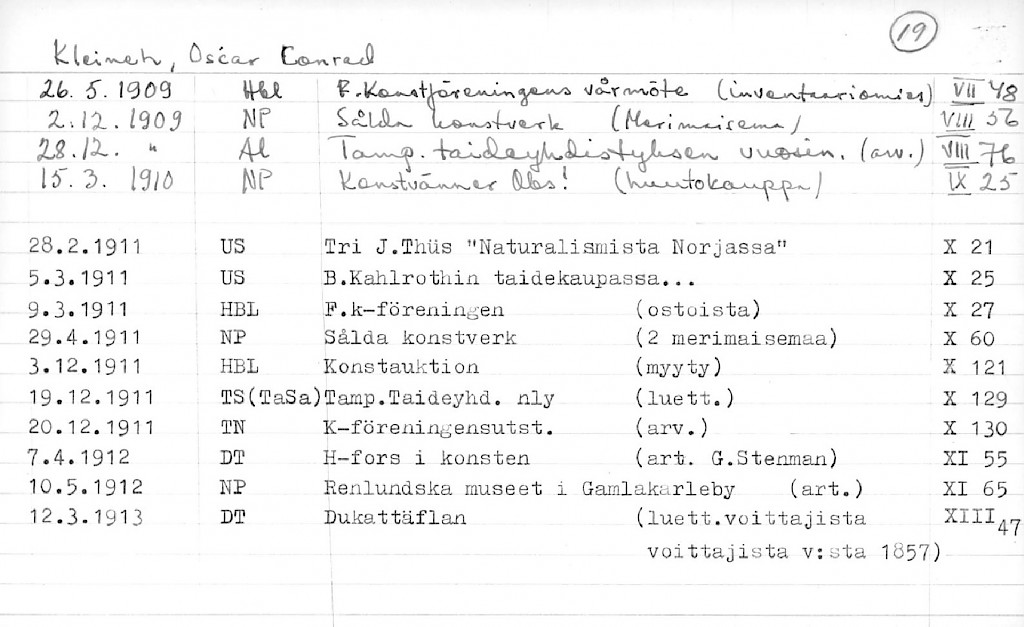 19
Kleineh, Oscar Conrad
26. 5. 1909 Hbl F. Konstföreningens vårmöte (inventaariomies) VII 48
2. 12. 1909 NP Sålda konstverk (Merimaisema) VIII 56
28. 12. " Al Tamp. taideyhdistyksen vuosin. (arv.) VIII 76
15. 3. 1910 NP Konstvänner Obs! (huutokauppa) IX 25
28.2.1911 US Tri J.Thüs "Naturalismista Norjassa" X 21
5.3.1911 US B.Kahlrothin taidekaupassa... X 25
9.3.1911 HBL F.k-föreningen (ostoista) X 27
29.4.1911 NP Sålda konstverk (2 merimaisemaa) X 60
3.12.1911 HBL Konstauktion (myyty) X 121
19.12.1911 TS(TaSa)Tamp.Taideyhd. nly (luett.) X 129
20.12.1911 TN K-föreningensutst. (arv.) X 130
7.4.1912 DT H-fors i konsten (art. G.Stenman) XI 55
10.5.1912 NP Renlundska museet i Gamlakarleby (art.) XI 65
12.3.1913 DT Dukattäflan (luett.voittajista XIII 47
voittajista v:sta 1857)